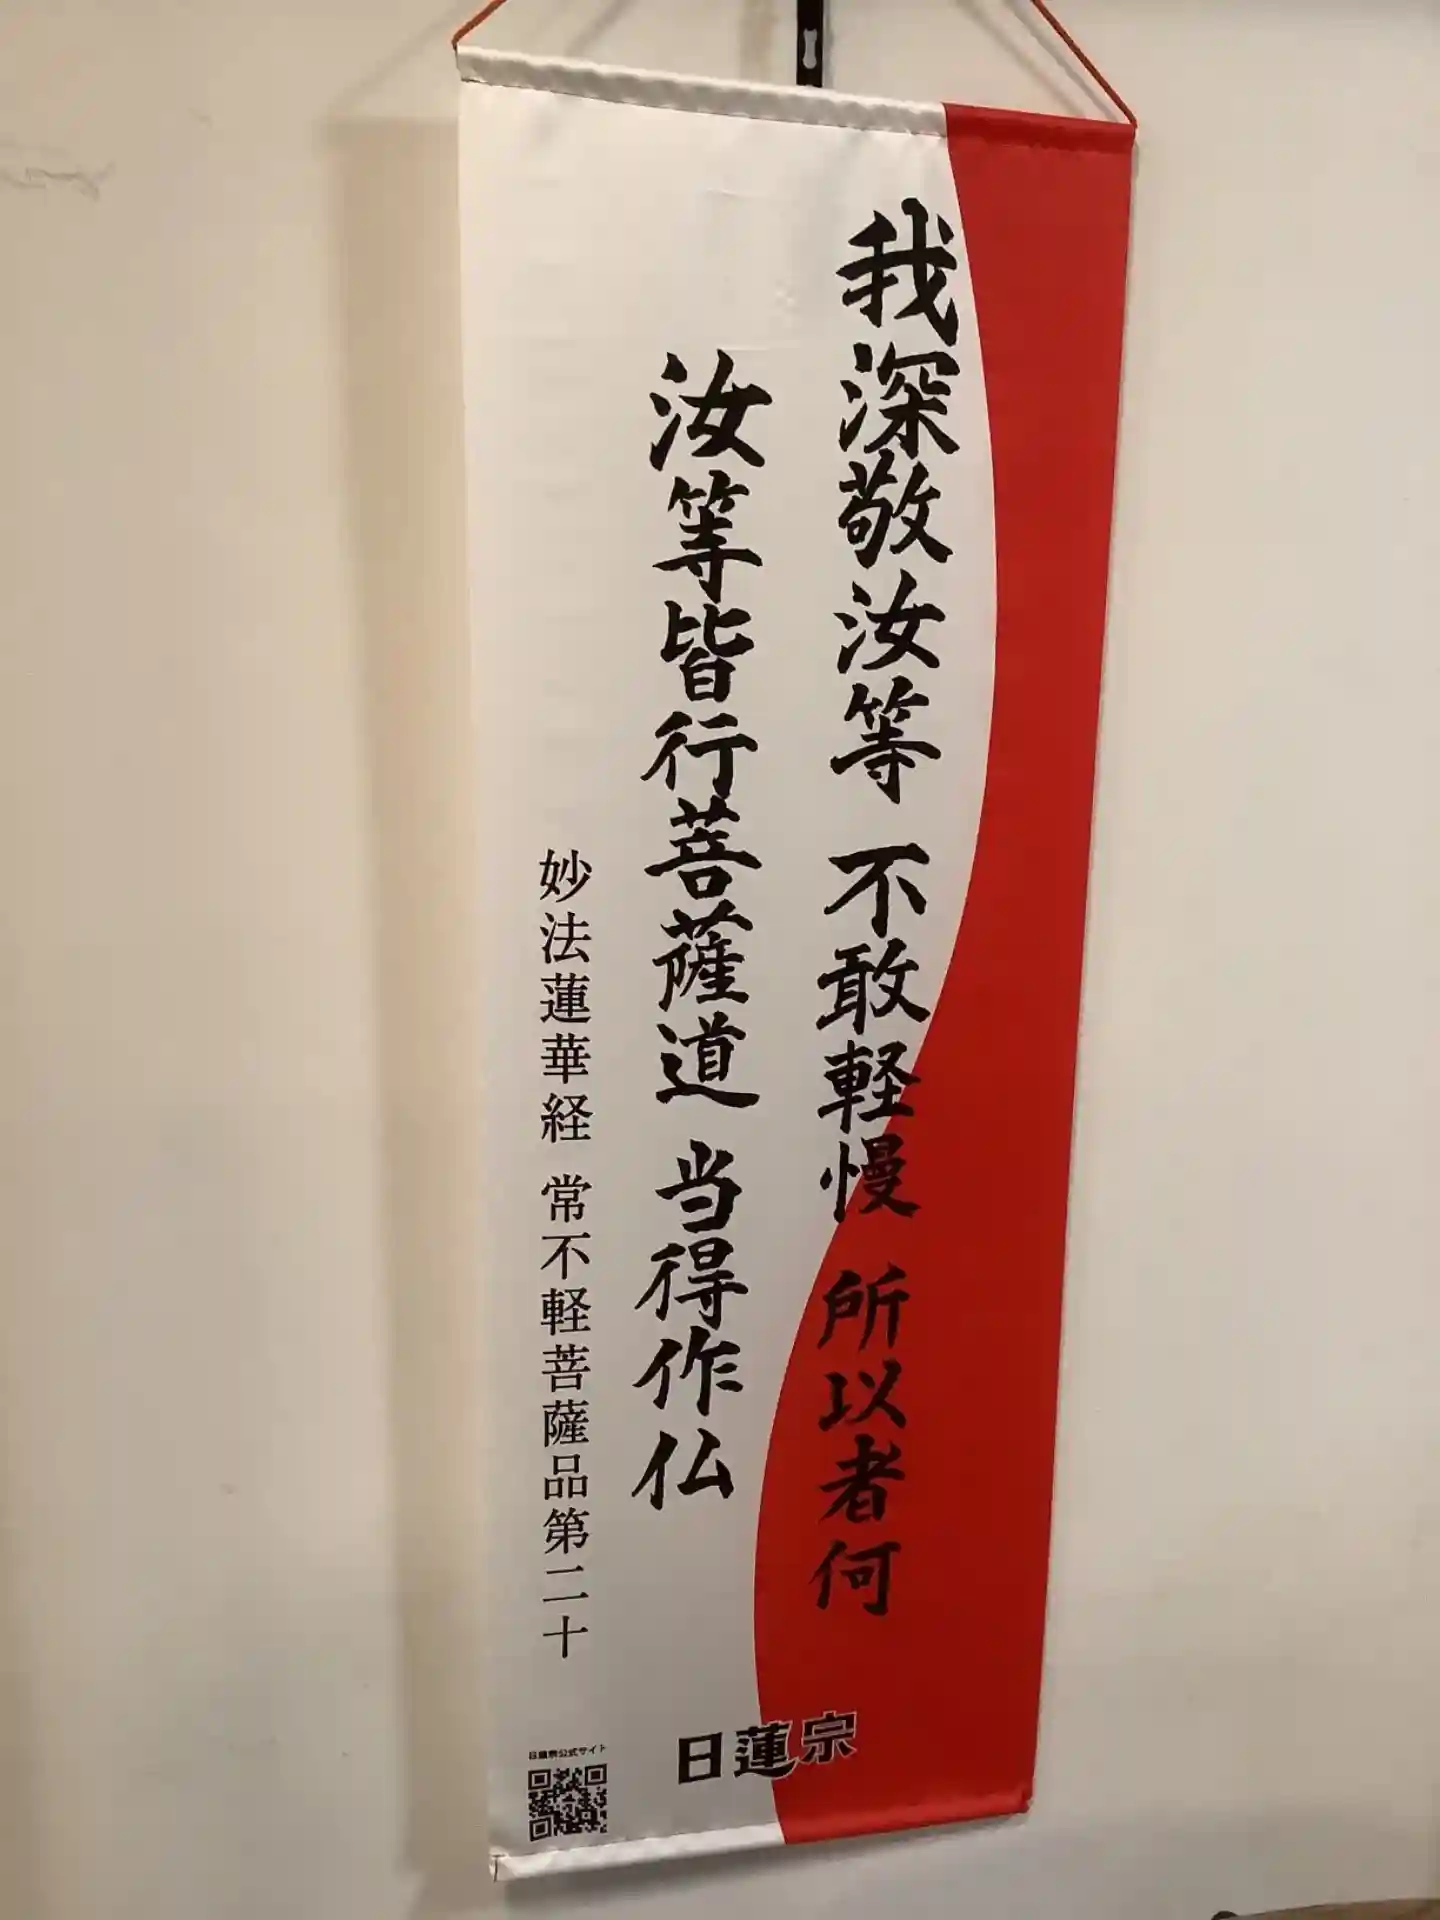 我深敬汝等 不敢軽慢 所以者何
汝等皆行菩薩道 当得作仏
妙法蓮華経 常不軽菩薩品第二十
日蓮宗
日蓮宗公式サイト